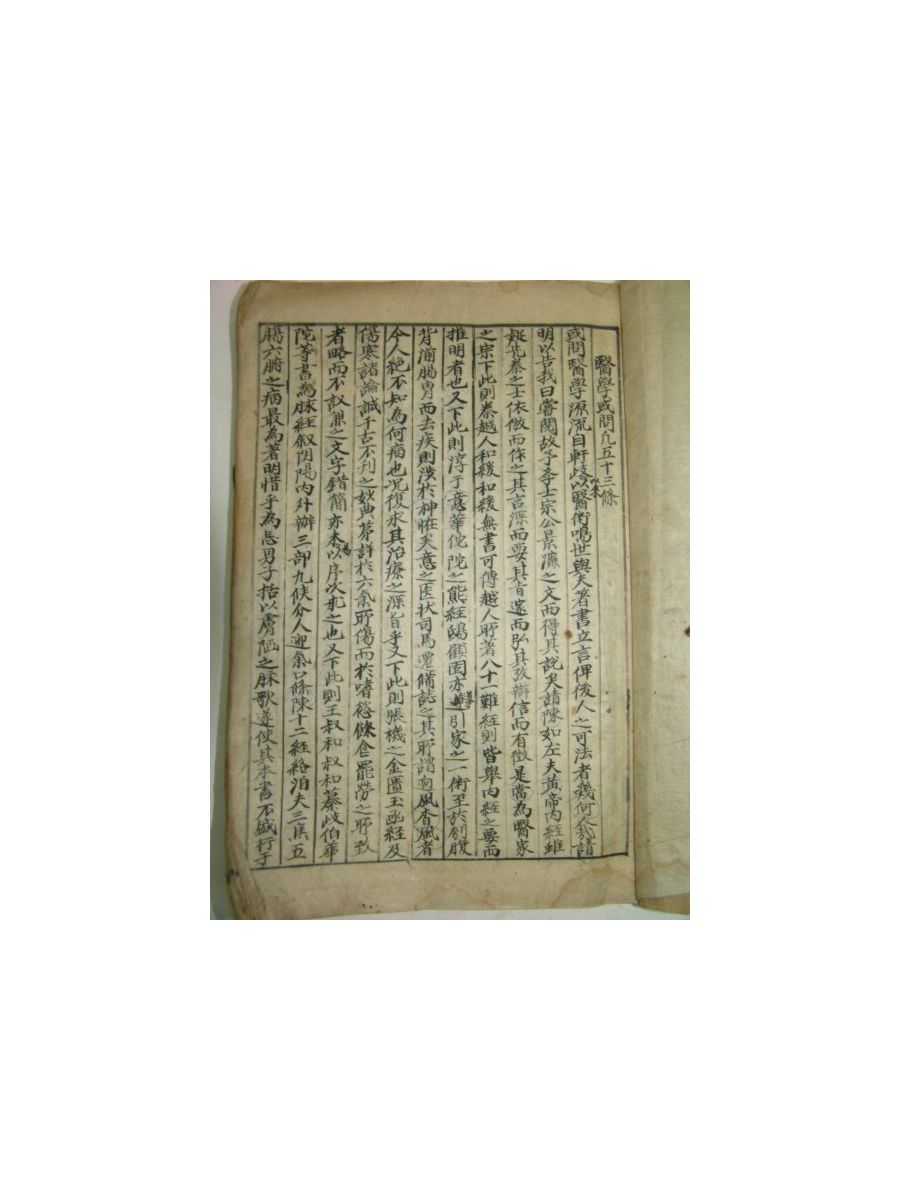 醫學或問凡五十三條
或問醫學源流自軒岐以來以醫術鳴世與夫著書立言俾後人之可法者幾何人哉請
明以告我曰嘗閱故學士宗公景濂之文而得其說矣請陳如左夫黃帝內經雖
疑先秦之士依倣而作之其言深而要其旨邃而弘其攷辯信而有徵是當為醫家
之宗下此則秦越人和緩和緩無書可傳越人所著八十一難經則皆舉內經之要而
推明者也又下此則淳于意華佗佗之熊經鴟顧固亦導引家之一術至於刳腹
背湔腸胃而去疾則涉於神怪矣意之医狀司馬遷俻誌之其所謂迵風沓風者
今人絕不知為何病也况復求其治療之深旨乎又下此則張機之金匱玉凾經及
傷寒諸論誠千古不刋之妙典苐詳於六氣所傷而於嗜慾飮食罷勞之所致
者略而不議兼之文字錯簡亦未易以序次求之也又下此則王叔和叔和纂岐伯華
佗等書為脉經叙阴陽內外辦三部九候分人迎氣口條陳十二經絡洎夫三焦五
臟六腑之病最為著明惜乎為怘男子括以膚陋之脉歌遂使其本書不盛行于